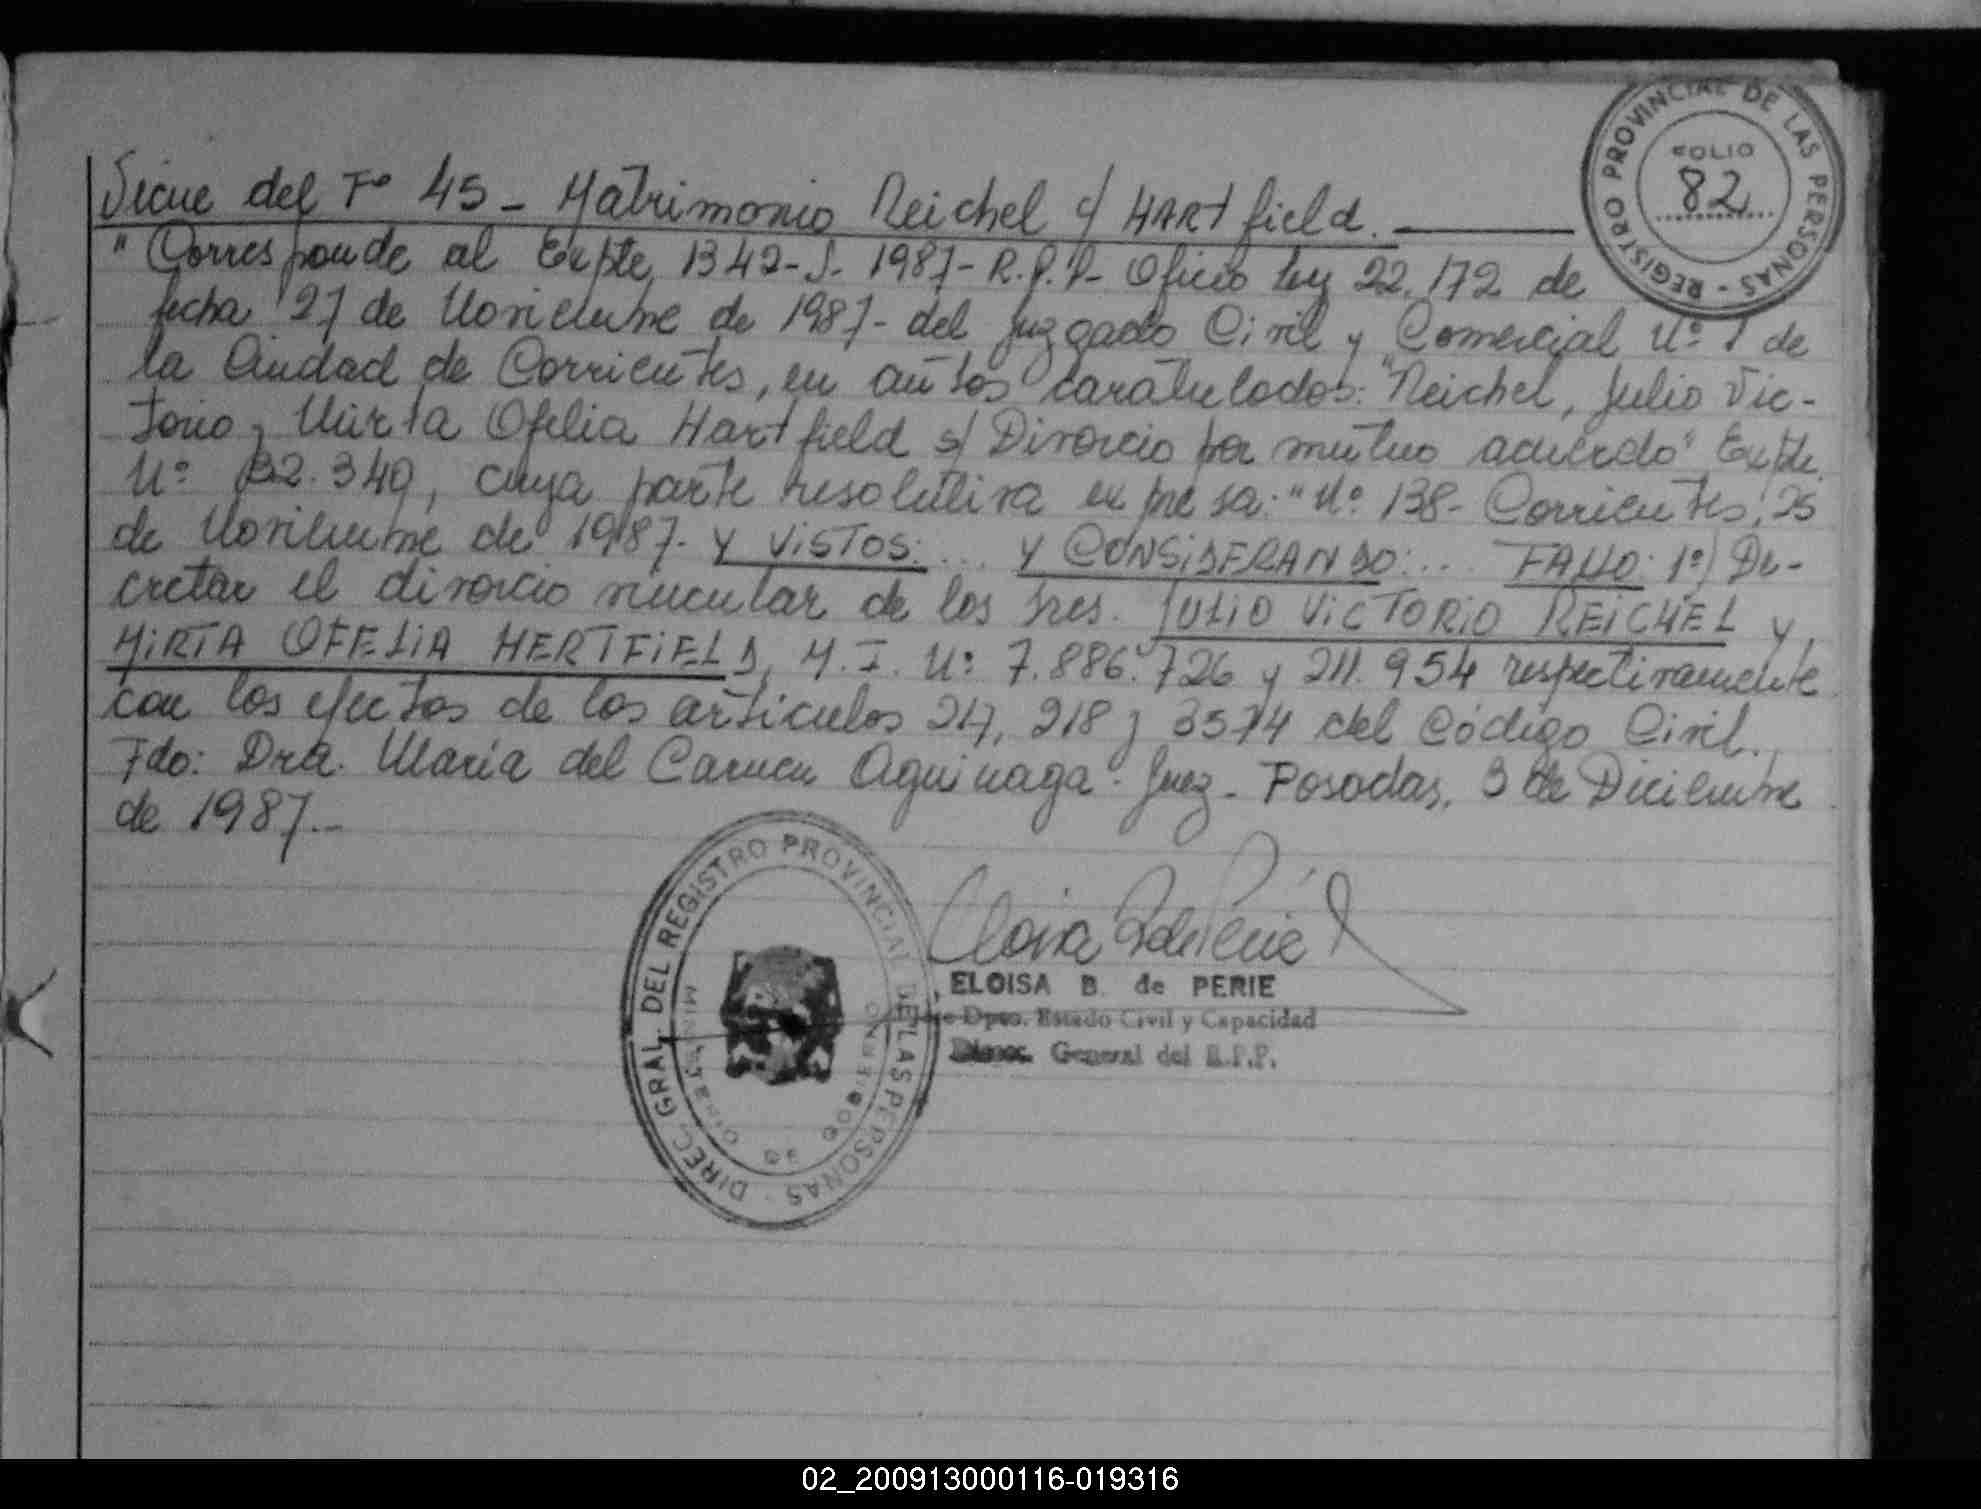 REGISTRO PROVINCIAL DE LAS PERSONAS -
FOLIO
82
Sigue del Fº 45 - Matrimonio Reichel c/ HARTfield.
"Corresponde al Expte, 1342-S. 1987- R.P.P- Oficio ley 22.172 de
fecha 27 de Noviembre de 1987- del Juzgado Civil y Comercial Nº 1 de
la Ciudad de Corrientes, en autos caratulados: "Reichel, Julio Vic-
torio y Mirta Ofelia Hartfield s/ Divorcio por mutuo acuerdo" Expte.
Nº 132.349, cuya parte resolutiva expresa: "Nº 138- Corrientes, 25
de Noviembre de 1987- Y VISTOS: ... Y CONSIDERANDO: ... FALLO: 1º) De-
cretar el divorcio vincular de los Sres. JULIO VICTORIO REICHEL y
MIRTA OFELIA HERTFIELD, M.I. Nº 7.886.726 y 211.954 respectivamente
con los efectos de los artículos 217, 218 y 3574 del Código Civil.
Fdo: Dra. María del Carmen Aguinaga - Juez - Posadas, 3 de Diciembre
de 1987.-
DIREC. GRAL. DEL REGISTRO PROVINCIAL DE LAS PERSONAS -
MINISTERIO DE GOBIERNO
ELOISA B. de PERIE
Jefe Dpto. Estado Civil y Capacidad
Direcc. General del R.P.P.
02_200913000116-019316